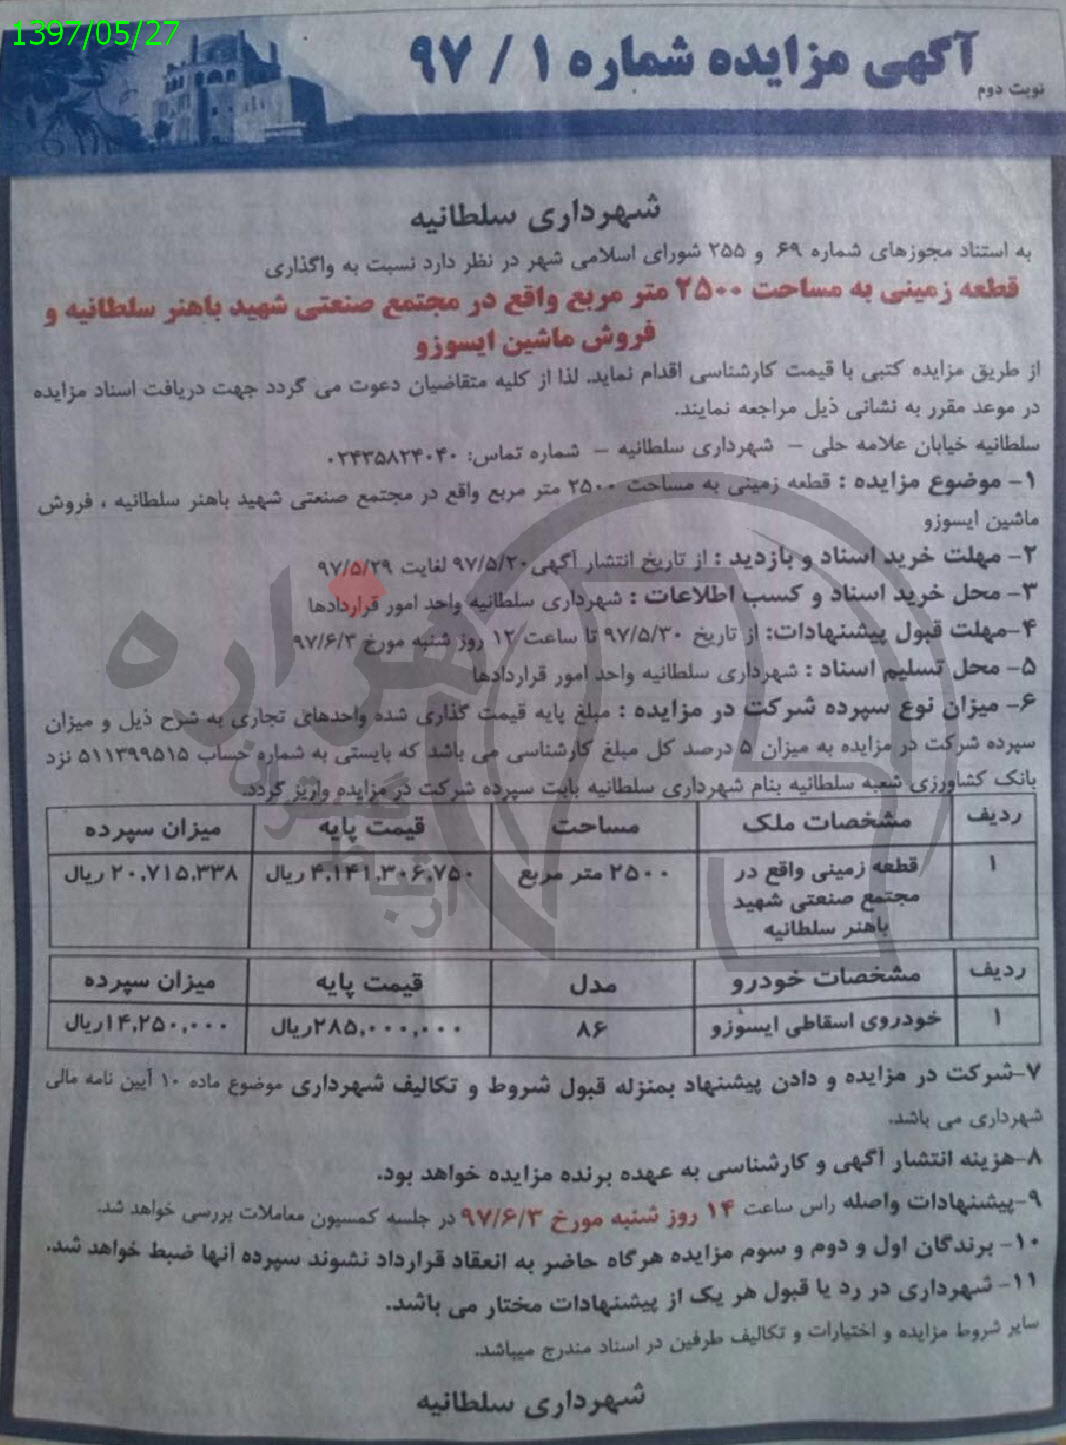 1397/05/27
آگهی مزایده شماره ۱ / ۹۷
نوبت دوم
شهرداری سلطانیه
به استناد مجوزهای شماره ۶۹ و ۲۵۵ شورای اسلامی شهر در نظر دارد نسبت به واگذاری
قطعه زمینی به مساحت ۲۵۰۰ متر مربع واقع در مجتمع صنعتی شهید باهنر سلطانیه و
فروش ماشین ایسوزو
از طریق مزایده کتبی با قیمت کارشناسی اقدام نماید. لذا از کلیه متقاضیان دعوت می گردد جهت دریافت اسناد مزایده
در موعد مقرر به نشانی ذیل مراجعه نمایند.
سلطانیه خیابان علامه حلی – شهرداری سلطانیه – شماره تماس: ۰۲۴۳۵۸۲۴۰۴۰
۱- موضوع مزایده : قطعه زمینی به مساحت ۲۵۰۰ متر مربع واقع در مجتمع صنعتی شهید باهنر سلطانیه ، فروش
ماشین ایسوزو
۲- مهلت خرید اسناد و بازدید : از تاریخ انتشار آگهی ۹۷/۵/۲۰ لغایت ۹۷/۵/۲۹
۳- محل خرید اسناد و کسب اطلاعات : شهرداری سلطانیه واحد امور قراردادها
۴-مهلت قبول پیشنهادات: از تاریخ ۹۷/۵/۳۰ تا ساعت ۱۲ روز شنبه مورخ ۹۷/۶/۳
۵- محل تسلیم اسناد : شهرداری سلطانیه واحد امور قراردادها
۶- میزان نوع سپرده شرکت در مزایده : مبلغ پایه قیمت گذاری شده واحدهای تجاری به شرح ذیل و میزان
سپرده شرکت در مزایده به میزان ۵ درصد کل مبلغ کارشناسی می باشد که بایستی به شماره حساب ۵۱۱۳۹۹۵۱۵ نزد
بانک کشاورزی شعبه سلطانیه بنام شهرداری سلطانیه بابت سپرده شرکت در مزایده واریز گردد.
ردیف مشخصات ملک مساحت قیمت پایه میزان سپرده
۱ قطعه زمینی واقع در ۲۵۰۰ متر مربع ۴,۱۴۱,۳۰۶,۷۵۰ ریال ۲۰,۷۱۵,۳۳۸ ریال
مجتمع صنعتی شهید
باهنر سلطانیه
ردیف مشخصات خودرو مدل قیمت پایه میزان سپرده
۱ خودروی اسقاطی ایسوزو ۸۶ ۲۸۵,۰۰۰,۰۰۰ریال ۱۴,۲۵۰,۰۰۰ریال
۷-شرکت در مزایده و دادن پیشنهاد بمنزله قبول شروط و تکالیف شهرداری موضوع ماده ۱۰ آیین نامه مالی
شهرداری می باشد.
۸-هزینه انتشار آگهی و کارشناسی به عهده برنده مزایده خواهد بود.
۹-پیشنهادات واصله راس ساعت ۱۴ روز شنبه مورخ ۹۷/۶/۳ در جلسه کمسیون معاملات بررسی خواهد شد.
۱۰- برندگان اول و دوم و سوم مزایده هرگاه حاضر به انعقاد قرارداد نشوند سپرده آنها ضبط خواهد شد.
۱۱- شهرداری در رد یا قبول هر یک از پیشنهادات مختار می باشد.
سایر شروط مزایده و اختیارات و تکالیف طرفین در اسناد مندرج میباشد.
شهرداری سلطانیه
هزاره